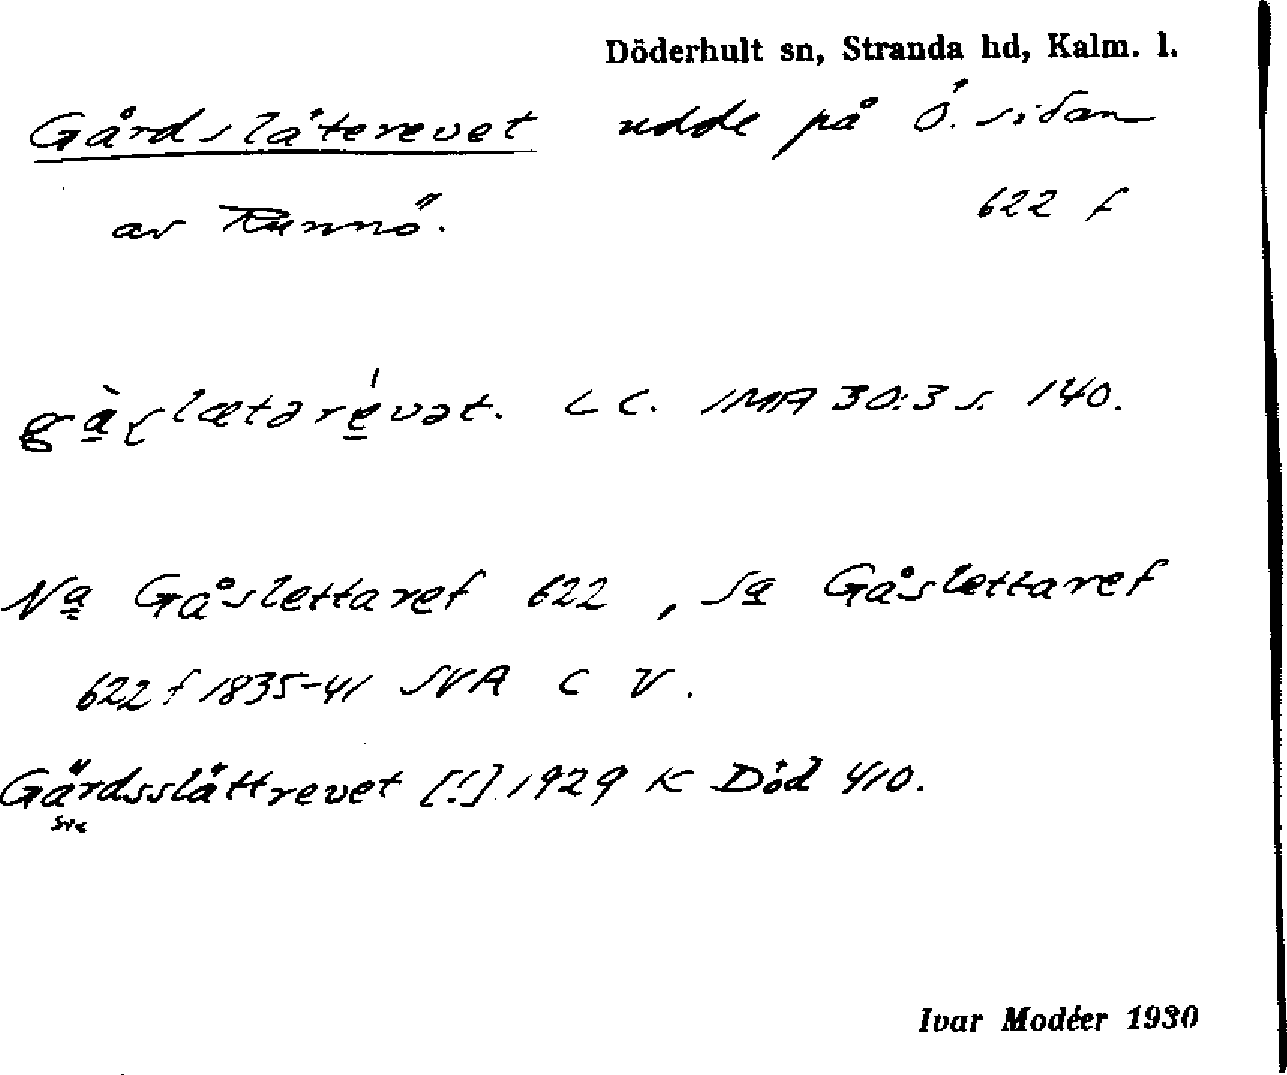 Döderhult sn, Stranda hd, Kalm. l.
Gårdslåterevet udde på Ö. sidan
av Runnö. 622 f
gàʂlætərévət. L C. IMA 30:3 s. 140.
Na Gåslettaref 622, Sa Gåslettaref
622 f 1835-41 SVA C V.
Gärdsslättrevet [!] 1929 K Död 410.
Ivar Modéer 1930